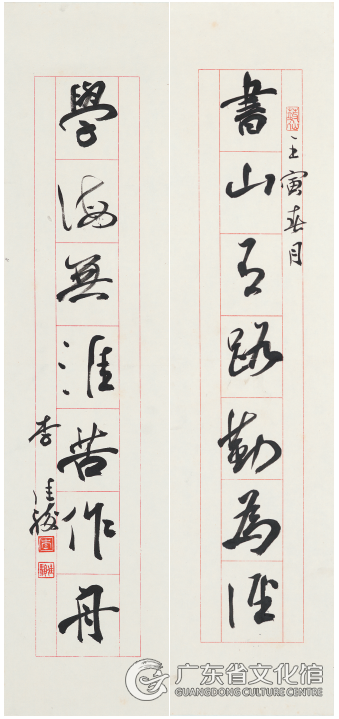 壬寅春月
書山有路勤為徑
學海無涯苦作舟
李佳
广东省文化馆
GUANGDONG CULTURE CENTRE